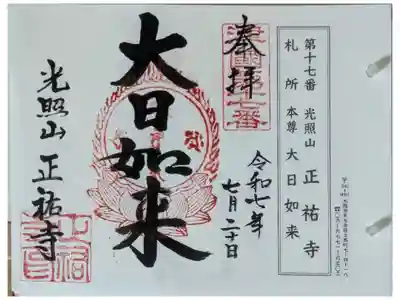 第十七番 光照山 正祐寺
札所 本尊 大日如来
奉拝
大日如来
令和七年
七月二十日
光照山 正祐寺